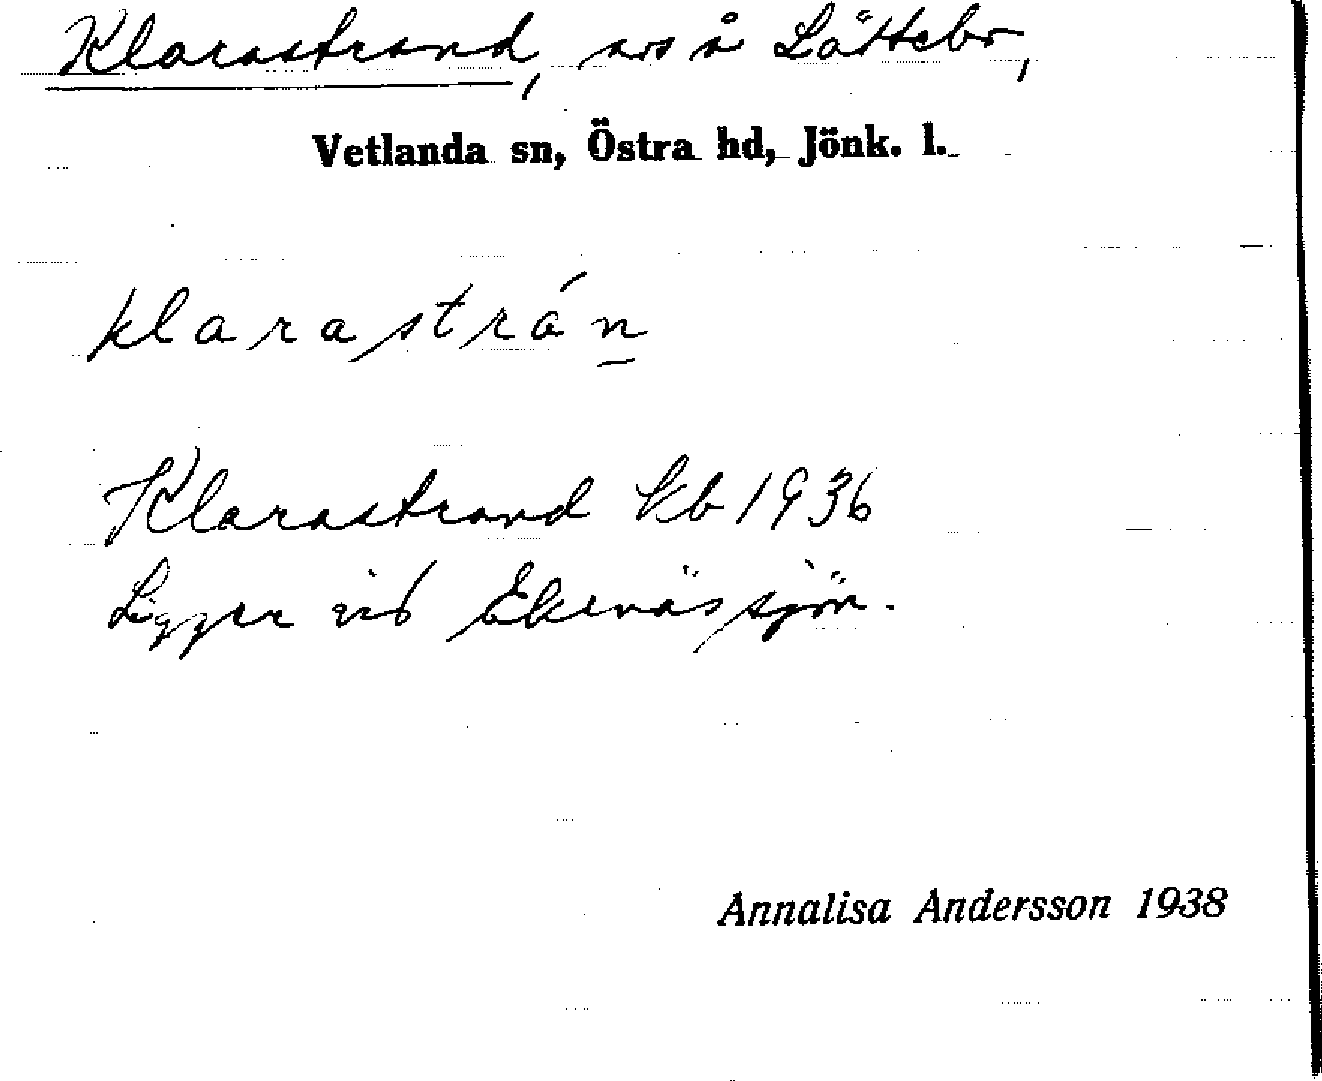 Klarastrand, avs å Lättebo,
Vetlanda sn, Östra hd, Jönk. l.
klarastrán̲
Klarastrand kb 1936
Ligger vid Ekenässjön.
Annalisa Andersson 1938